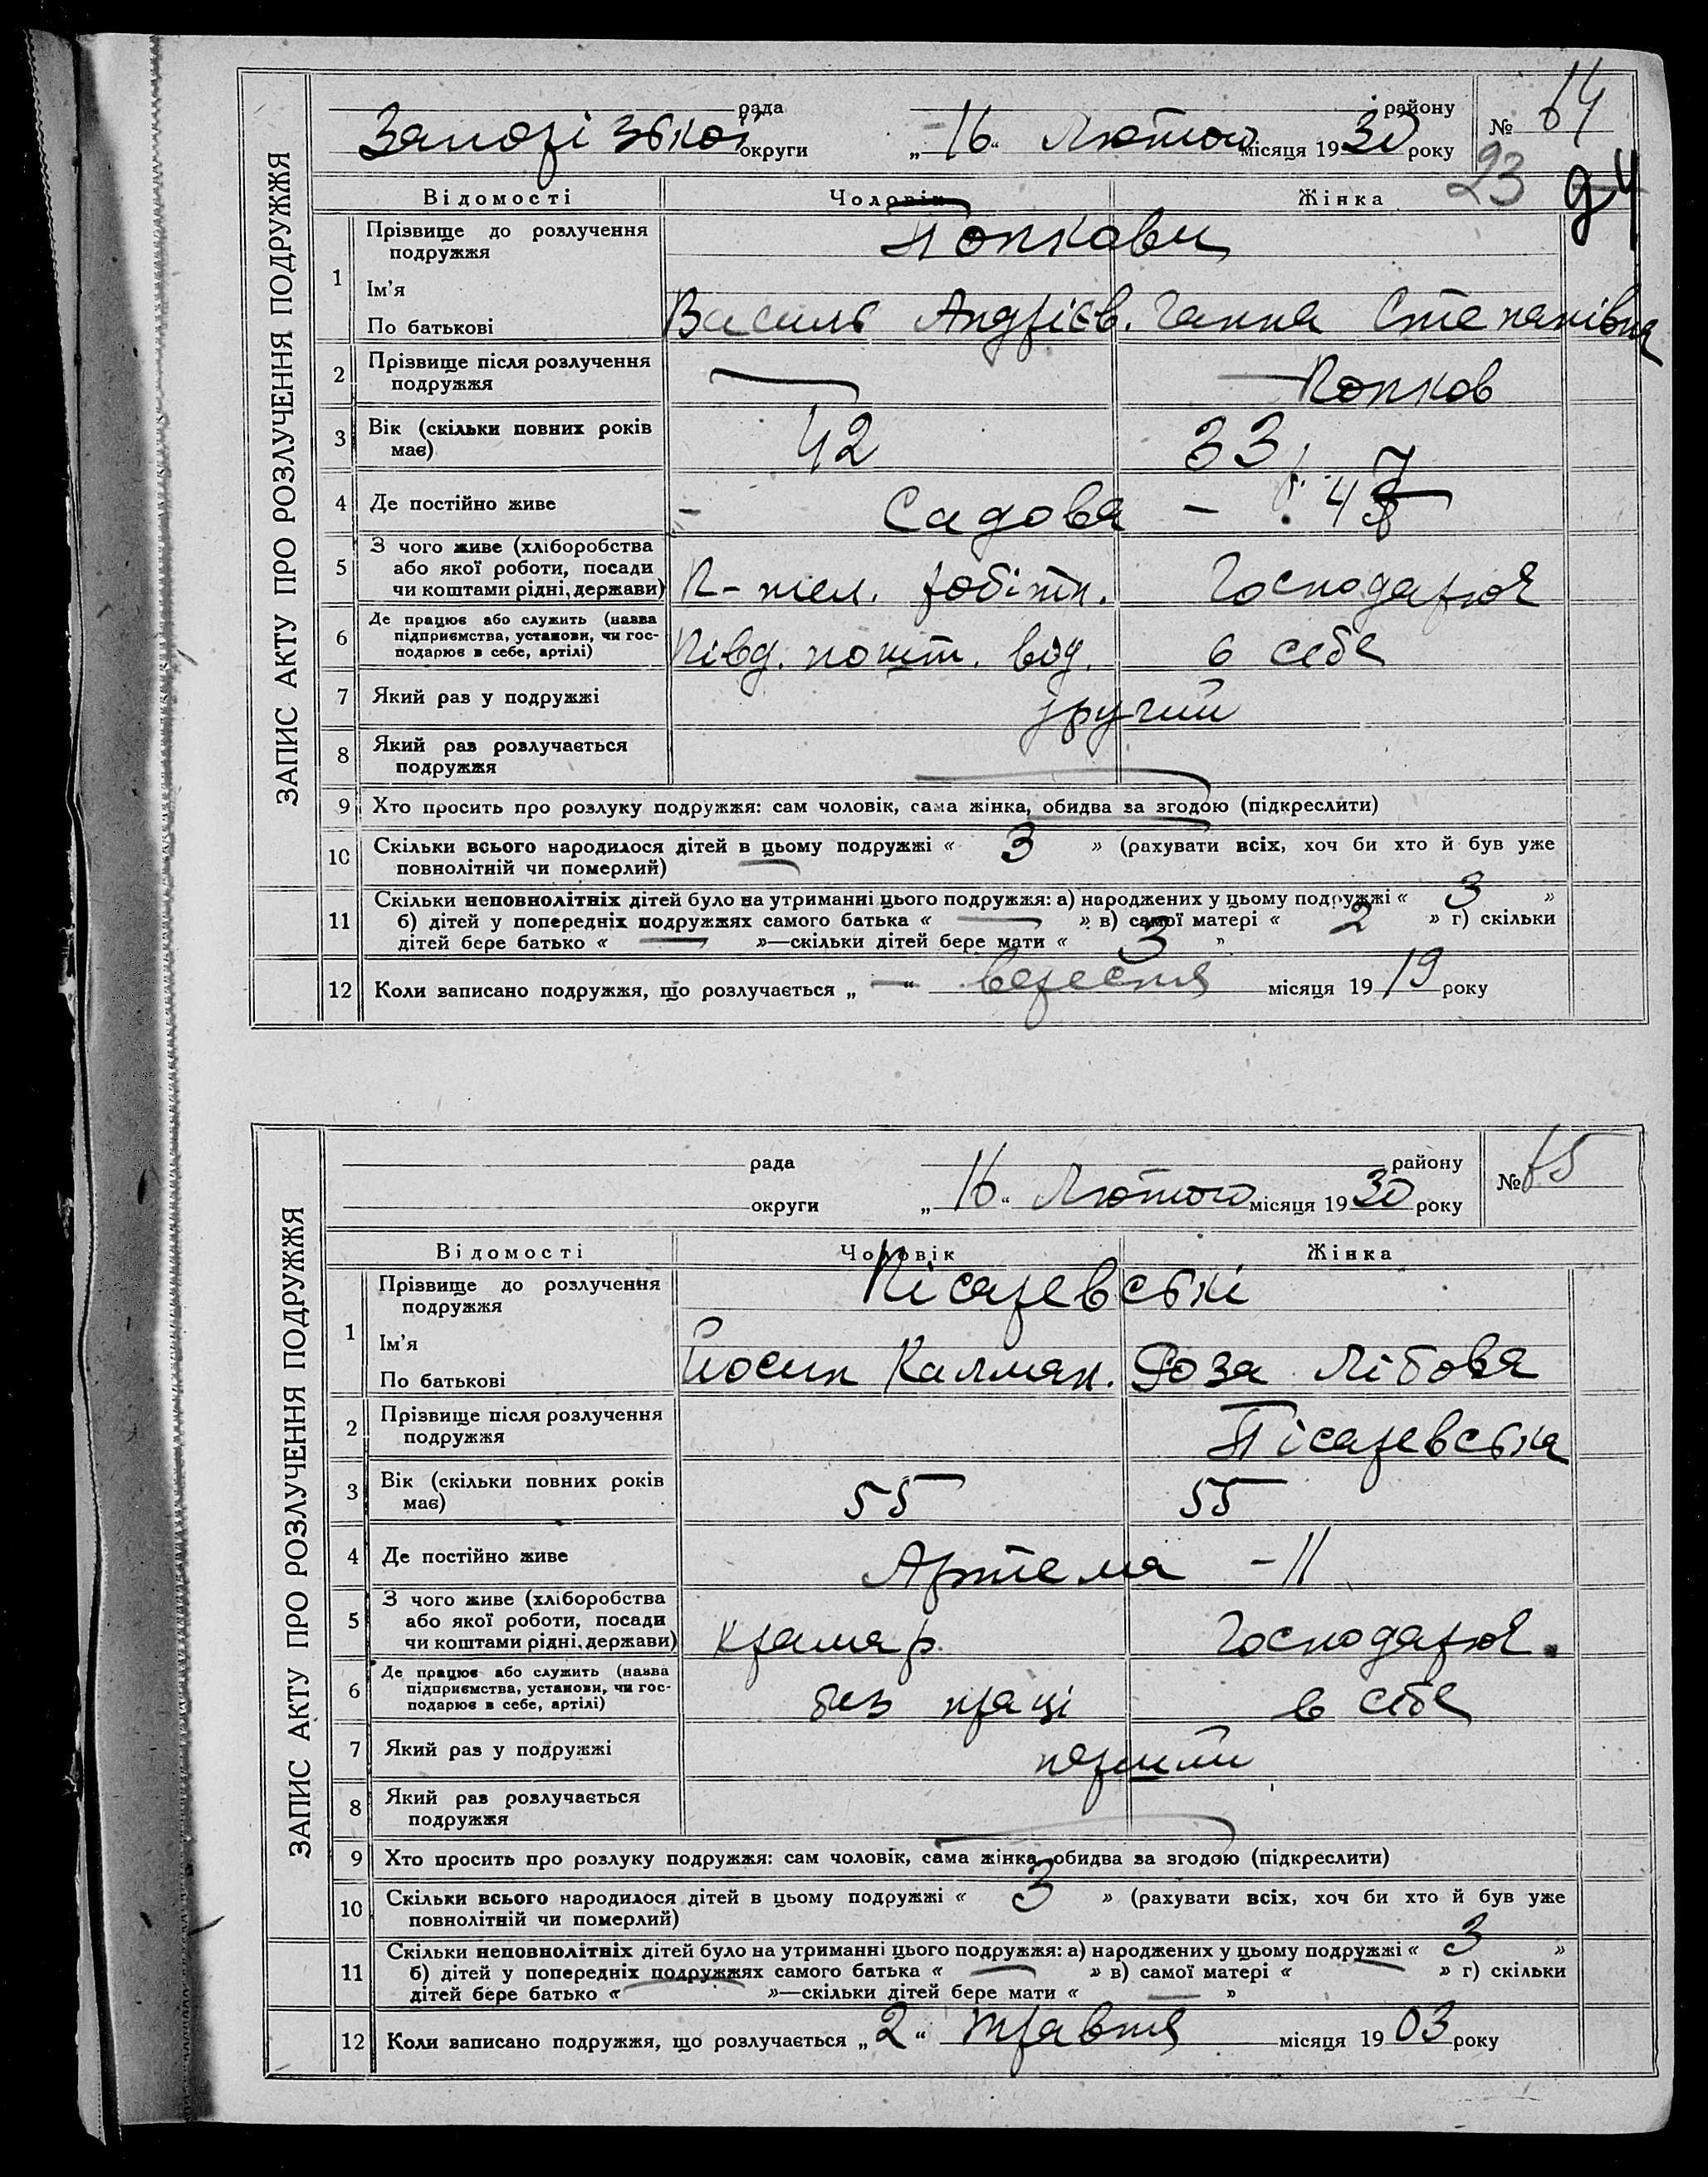 ЗАПИС АКТУ ПРО РОЗЛУЧЕННЯ ПОДРУЖЖЯ
рада району № 64
Запорізької округи „16“ Лютого місяця 1930 року
23
Відомості Чоловік Жінка
1 Прізвище до розлучення подружжя Попкови
Ім'я
По батькові Василь Андрієв. Ганна Степанівна
2 Прізвище після розлучення подружжя — Попков
3 Вік (скільки повних років має) 42 33
4 Де постійно живе - Садова - 47
5 З чого живе (хліборобства або якої роботи, посади чи коштами рідні, держави) робітн. Господарює
6 Де працює або служить (назва підприємства, установи, чи господарює в себе, артілі) Півд. пошт. від. в себе
7 Який раз у подружжі другий
8 Який раз розлучається подружжя
9 Хто просить про розлуку подружжя: сам чоловік, сама жінка, обидва за згодою (підкреслити)
10 Скільки всього народилося дітей в цьому подружжі « 3 » (рахувати всіх, хоч би хто й був уже
повнолітній чи померлий)
11 Скільки неповнолітніх дітей було на утриманні цього подружжя: а) народжених у цьому подружжі « 3 »
б) дітей у попередніх подружжях самого батька « — » в) самої матері « 2 » г) скільки
дітей бере батько « — »—скільки дітей бере мати « 3 »
12 Коли записано подружжя, що розлучається „ — “ вересня місяця 1919 року
ЗАПИС АКТУ ПРО РОЗЛУЧЕННЯ ПОДРУЖЖЯ
рада району № 65
округи „16“ Лютого місяця 1930 року
Відомості Чоловік Жінка
1 Прізвище до розлучення подружжя Пісаревські
Ім'я
По батькові Йосип Калман. Роза Лібова
2 Прізвище після розлучення подружжя Пісаревська
3 Вік (скільки повних років має) 55 55
4 Де постійно живе Артема - 11
5 З чого живе (хліборобства або якої роботи, посади чи коштами рідні, держави) крамар Господарює.
6 Де працює або служить (назва підприємства, установи, чи господарює в себе, артілі) без праці в себе
7 Який раз у подружжі перший
8 Який раз розлучається подружжя
9 Хто просить про розлуку подружжя: сам чоловік, сама жінка, обидва за згодою (підкреслити)
10 Скільки всього народилося дітей в цьому подружжі « 3 » (рахувати всіх, хоч би хто й був уже
повнолітній чи померлий)
11 Скільки неповнолітніх дітей було на утриманні цього подружжя: а) народжених у цьому подружжі « 3 »
б) дітей у попередніх подружжях самого батька « — » в) самої матері « » г) скільки
дітей бере батько « — »—скільки дітей бере мати « — »
12 Коли записано подружжя, що розлучається „2“ травня місяця 1903 року